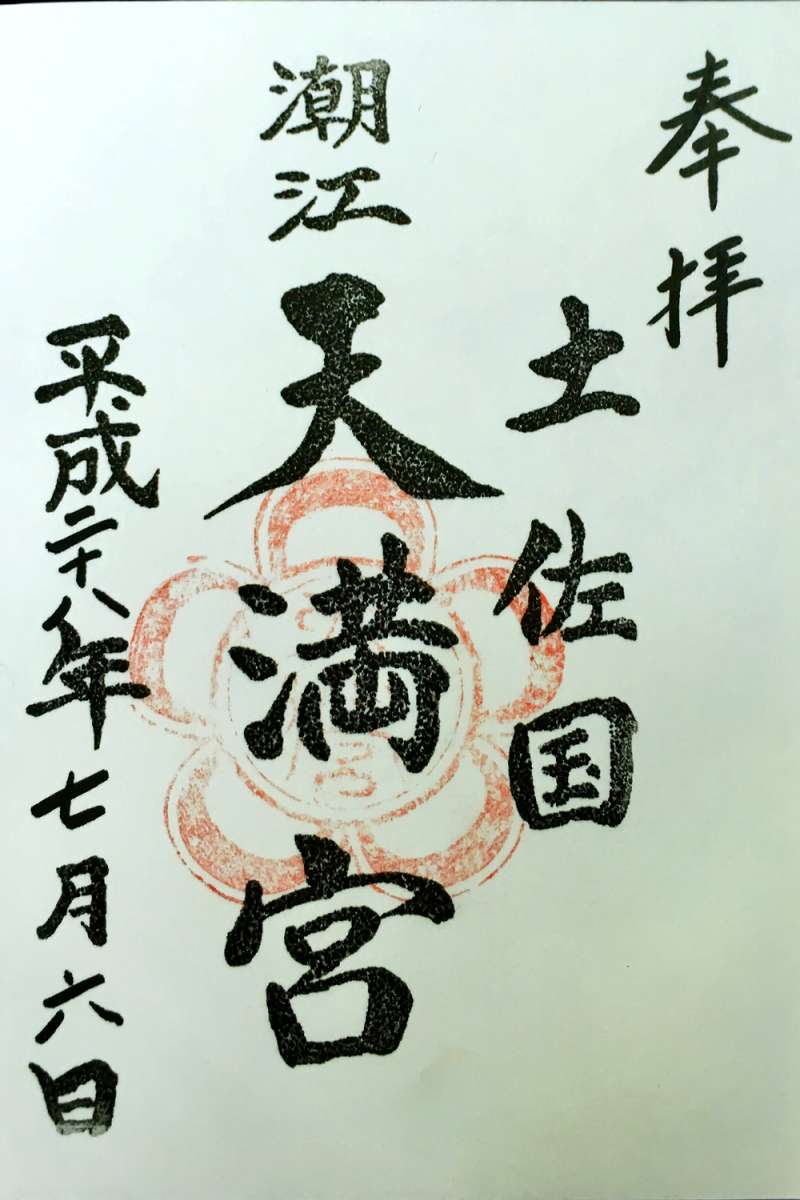 奉拝
土佐国
潮江天満宮
平成二十八年七月六日